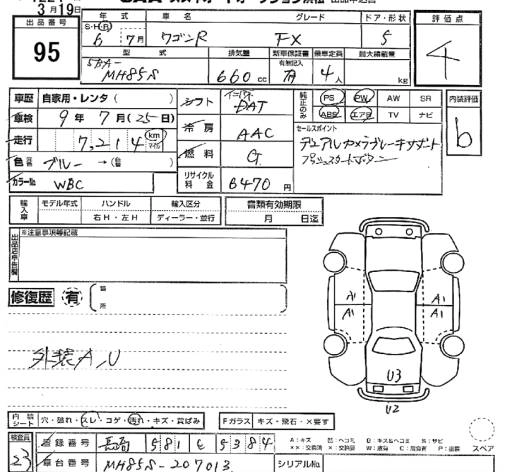 3月19日
出品番号 年式 車名 グレード ドア・形状 評価点
95
S・H・R 6年 7月 ワゴンR FX 5 4
型式 排気量 新車保証書 乗車定員 最大積載量
5BA-MH85S 660cc 有 4人 kg
車歴 自家用・レンタ( ) シフト インパネ DAT 純正のみ PS PW AW SR 内装評価
車検 9年7月(25日) ABS エアB TV ナビ b
走行 7,214 km マイル 冷房 AAC セールスポイント
デュアルカメラブレーキサポート
プッシュスタートボタン
色 ブルー→( ) 燃料 G
カラーNo WBC リサイクル料金 6470円
輸入車 モデル年式 ハンドル 輸入区分 書類有効期限
右H・左H ディーラー・並行 月 日迄
※注意事項等記載
出品店申告欄
修復歴 有 箇所
A1 A1
A1 A1
外装A,U
U3
U2
内装シート 穴・破れ・スレ・コゲ・汚れ・キズ・黄ばみ Fガラス キズ・飛石・X要す
検査員 23 登録番号 長崎 581 5384 スペア
車台番号 MH85S-207013 シリアルNo